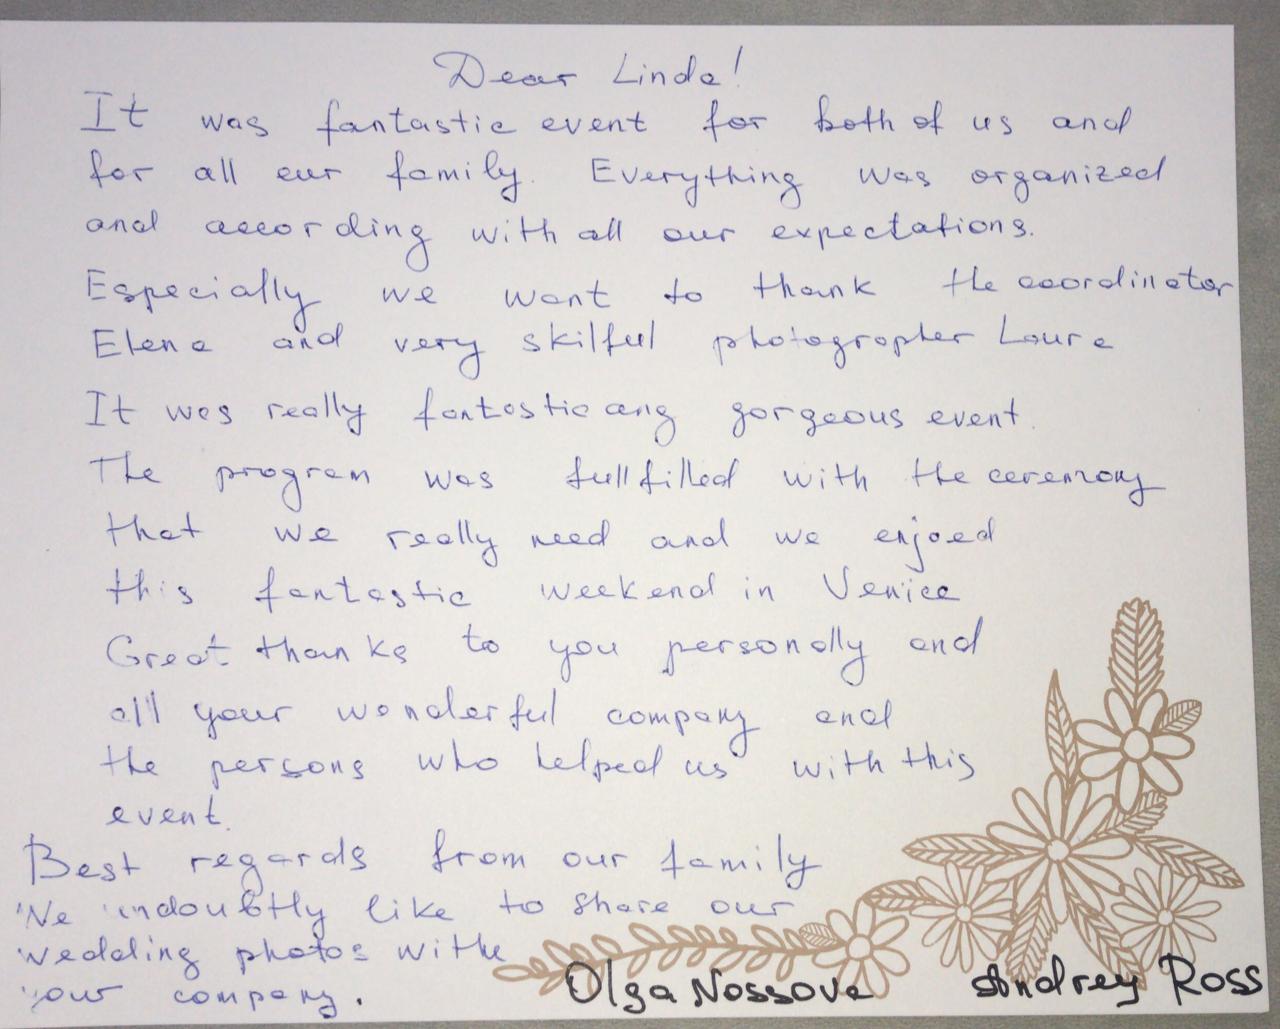 Dear Linda!
It was fantastic event for both of us and
for all our family. Everything was organized
and according with all our expectations.
Especially we want to thank the coordinator
Elena and very skilful photographer Laura
It was really fantastic ang gorgeous event.
The program was fullfilled with the ceremony
that we really need and we enjoed
this fantastic weekend in Venice
Great thanks to you personally and
all your wonderful company and
the persons who helped us with this
event.
Best regards from our family
We undoubtly like to share our
wedding photos withe
your company.
Olga Nossova Andrey Ross